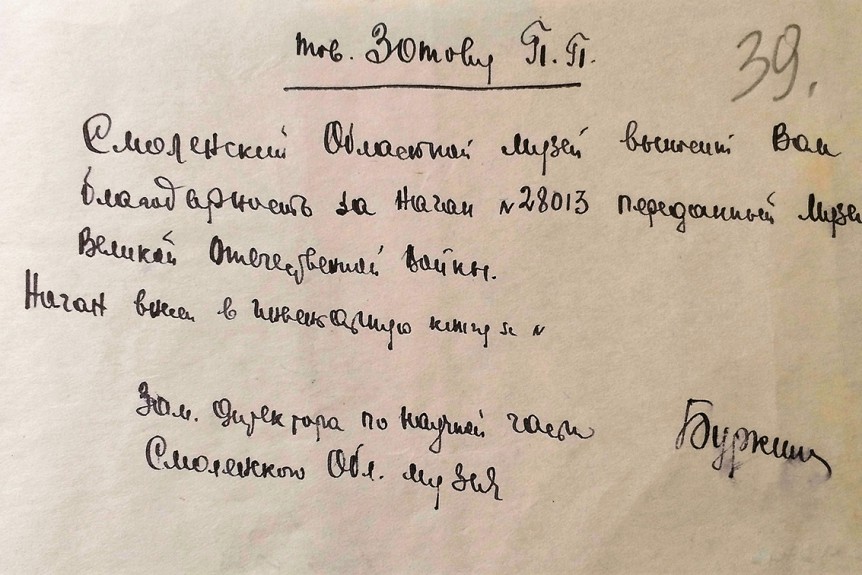 тов. Зотову П.П.
39.
Смоленский Областной музей выносит Вам
благодарность за наган №28013 переданный Музею
Великой Отечественной Войны.
Наган внесен в инвентарную книгу за №
Зам. директора по научной части
Смоленского Обл. музея